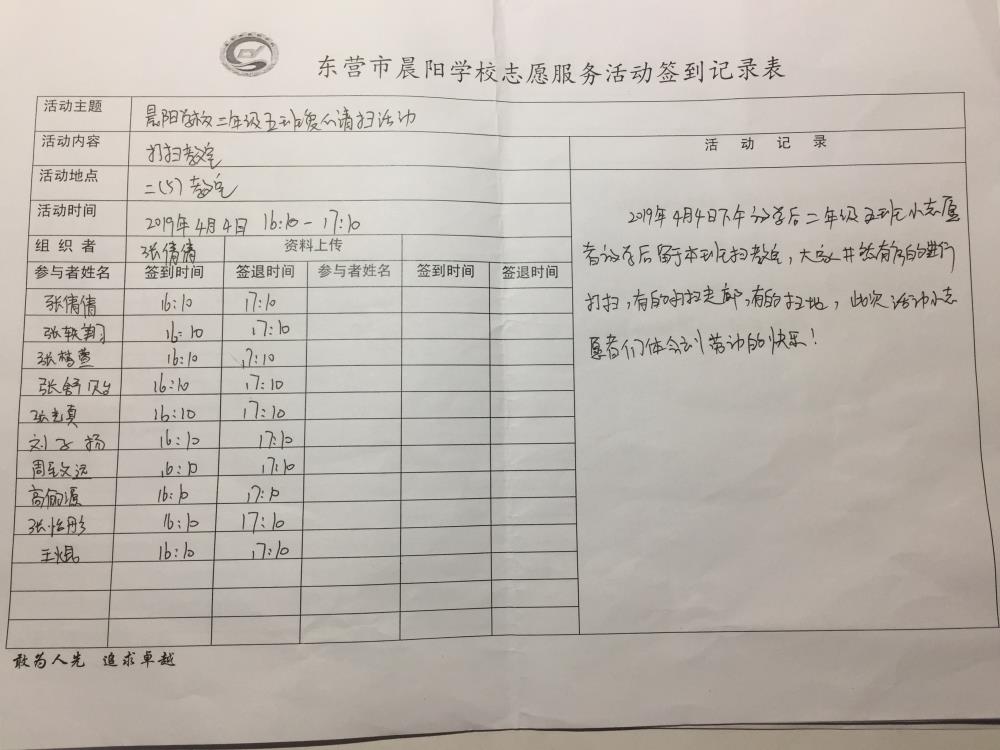 东营市晨阳学校志愿服务活动签到记录表
活动主题 晨阳学校二年级五班爱心清扫活动
活动内容 打扫教室
活动地点 二(5)教室
活动时间 2019年4月4日 16:10-17:10
组织者 张倩倩 资料上传
参与者姓名 签到时间 签退时间 参与者姓名 签到时间 签退时间
张倩倩 16:10 17:10
张轶翔 16:10 17:10
张梦萱 16:10 17:10
张舒贻 16:10 17:10
张光真 16:10 17:10
刘子扬 16:10 17:10
周至文远 16:10 17:10
高源 16:10 17:10
张怡彤 16:10 17:10
王焜 16:10 17:10
活动记录
2019年4月4日下午放学后二年级五班小志愿
者放学后留于本班扫教室,大家井然有序的进行
打扫,有的打扫走廊,有的扫地,此次活动小志
愿者们体会到劳动的快乐!
敢为人先 追求卓越